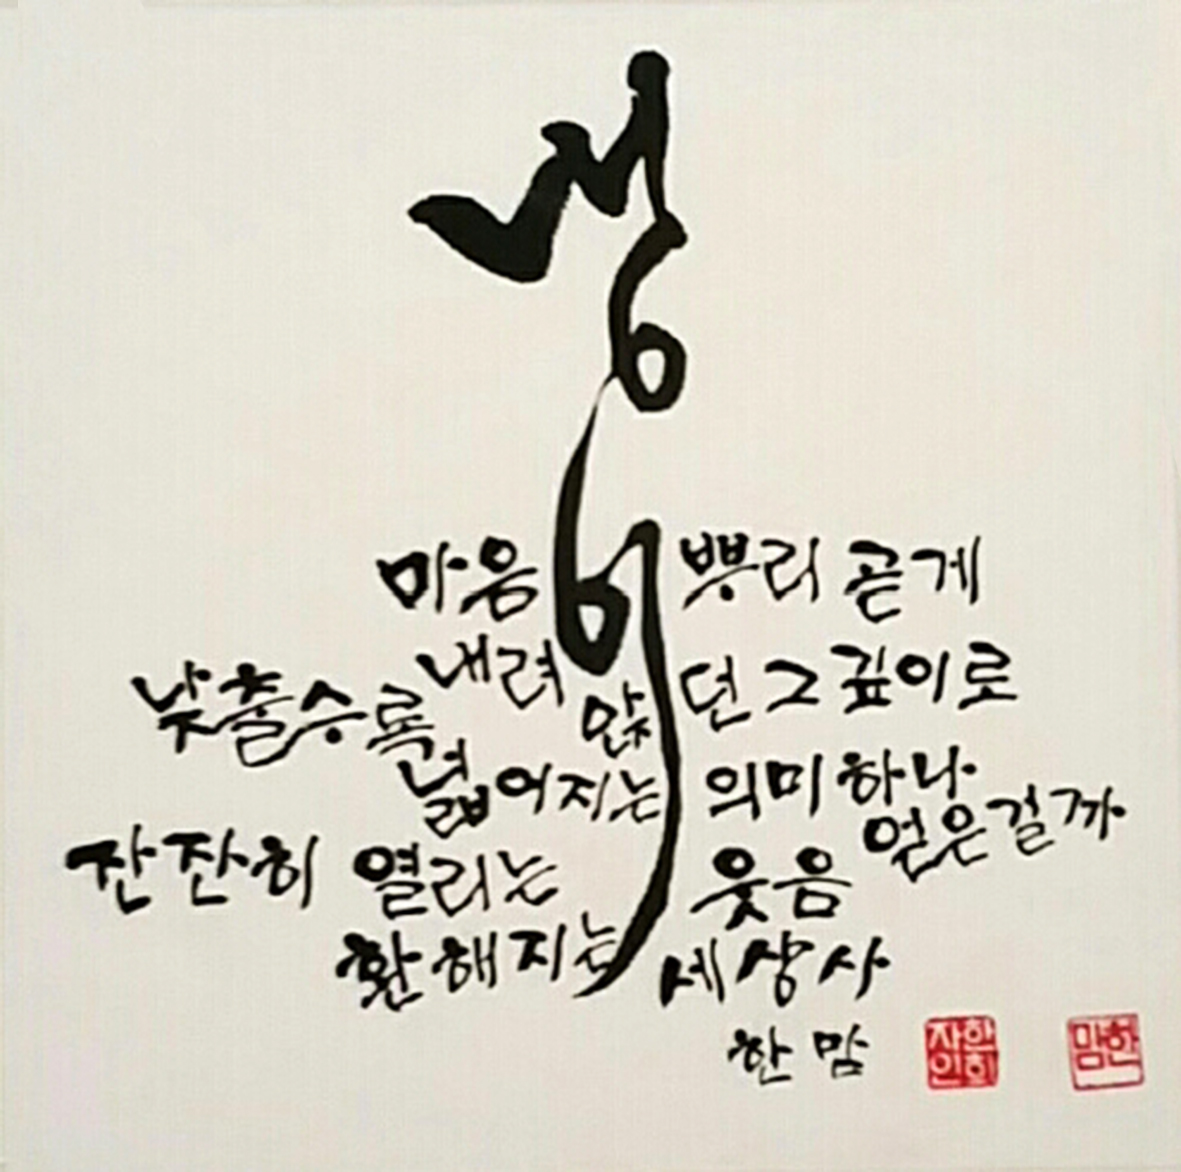 냉이
마음 뿌리 곧게
내려 앉던 그 깊이로
낮출수록 넓어지는 의미 하나
얻은걸까
잔잔히 열리는 웃음
환해지는 세상사
한맘
한희자인
한맘